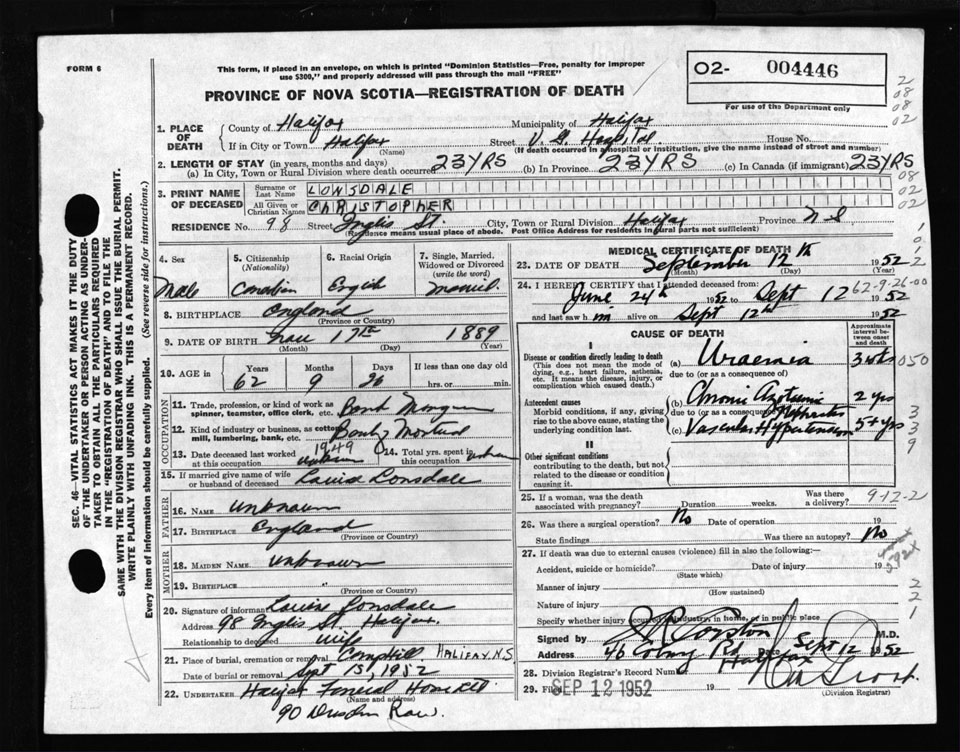 FORM 6
This form, if placed in an envelope, on which is printed "Dominion Statistics—Free, penalty for improper
use $300," and properly addressed will pass through the mail "FREE"
PROVINCE OF NOVA SCOTIA—REGISTRATION OF DEATH
O2- 004446
For use of the Department only
1. PLACE OF DEATH
County of Halifax Municipality of Halifax
If in City or Town Halifax Street V. G. Hospital House No.
(Name) (If death occurred in a hospital or institution, give the name instead of street and number)
2. LENGTH OF STAY (in years, months and days)
(a) In City, Town or Rural Division where death occurred 23 YRS (b) In Province 23 YRS (c) In Canada (if immigrant) 23 YRS
3. PRINT NAME OF DECEASED
Surname or Last Name LONSDALE
All Given or Christian Names CHRISTOPHER
RESIDENCE No. 98 Street Inglis St. City, Town or Rural Division Halifax Province N S
(Residence means usual place of abode. Post Office Address for residents in rural parts not sufficient)
4. Sex
Male
5. Citizenship (Nationality)
Canadian
6. Racial Origin
English
7. Single, Married, Widowed or Divorced (write the word)
Married
8. BIRTHPLACE England
(Province or Country)
9. DATE OF BIRTH 17th 1889
(Month) (Day) (Year)
10. AGE in Years Months Days If less than one day old
62 9 26 hrs. or min.
OCCUPATION
11. Trade, profession, or kind of work as
spinner, teamster, office clerk, etc. Bank
12. Kind of industry or business, as cotton
mill, lumbering, bank, etc. Bank of Montreal
13. Date deceased last worked at this occupation 1949 unknown
14. Total yrs. spent in this occupation unknown
15. If married give name of wife
or husband of deceased Louise Lonsdale
FATHER
16. NAME Unknown
17. BIRTHPLACE England
(Province or Country)
MOTHER
18. MAIDEN NAME Unknown
19. BIRTHPLACE "
(Province or Country)
20. Signature of informant Louise Lonsdale
Address 98 Inglis St. Halifax.
Relationship to deceased wife
21. Place of burial, cremation or removal Camphill HALIFAX, N.S
Date of burial or removal Sept 15, 1952
22. UNDERTAKER Halifax Funeral Home Ltd.
(Name and address)
90 Dresden Row.
MEDICAL CERTIFICATE OF DEATH
23. DATE OF DEATH September 12th 1952
(Month) (Day) (Year)
24. I HEREBY CERTIFY that I attended deceased from:
June 24th 1952 to Sept 12 1952
and last saw him alive on Sept 12th 1952
62-9-26-00
CAUSE OF DEATH
Approximate interval between onset and death
I
Disease or condition directly leading to death
(This does not mean the mode of
dying, e.g., heart failure, asthenia,
etc. It means the disease, injury, or
complication which caused death.)
(a) Uraemia 3 wks
due to (or as a consequence of)
Antecedent causes
Morbid conditions, if any, giving
rise to the above cause, stating the
underlying condition last.
(b) Chronic Azotemic 2 yrs
due to (or as a consequence of) Nephritis
(c) Vascular Hypertension 5+ yrs
II
Other significant conditions
contributing to the death, but not
related to the disease or condition
causing it.
25. If a woman, was the death
associated with pregnancy? Duration weeks. Was there a delivery?
9-12-2
26. Was there a surgical operation? No Date of operation 19
State findings Was there an autopsy? No
27. If death was due to external causes (violence) fill in also the following:—
Accident, suicide or homicide? Date of injury 19
(State which)
Manner of injury
(How sustained)
Nature of injury
Specify whether injury occurred in industry, in home, or in public place
Signed by M.D.
Address 46 Coburg Rd Halifax Date Sept 12 1952
28. Division Registrar's Record Number
29. Filed SEP 12 1952 19
(Division Registrar)
SEC. 46—VITAL STATISTICS ACT MAKES IT THE DUTY
OF THE UNDERTAKER OR PERSON ACTING AS UNDER-
TAKER TO OBTAIN ALL THE PARTICULARS REQUIRED
IN THE "REGISTRATION OF DEATH" AND TO FILE THE
SAME WITH THE DIVISION REGISTRAR WHO SHALL ISSUE THE BURIAL PERMIT.
WRITE PLAINLY WITH UNFADING INK. THIS IS A PERMANENT RECORD.
Every item of information should be carefully supplied. (See reverse side for instructions.)